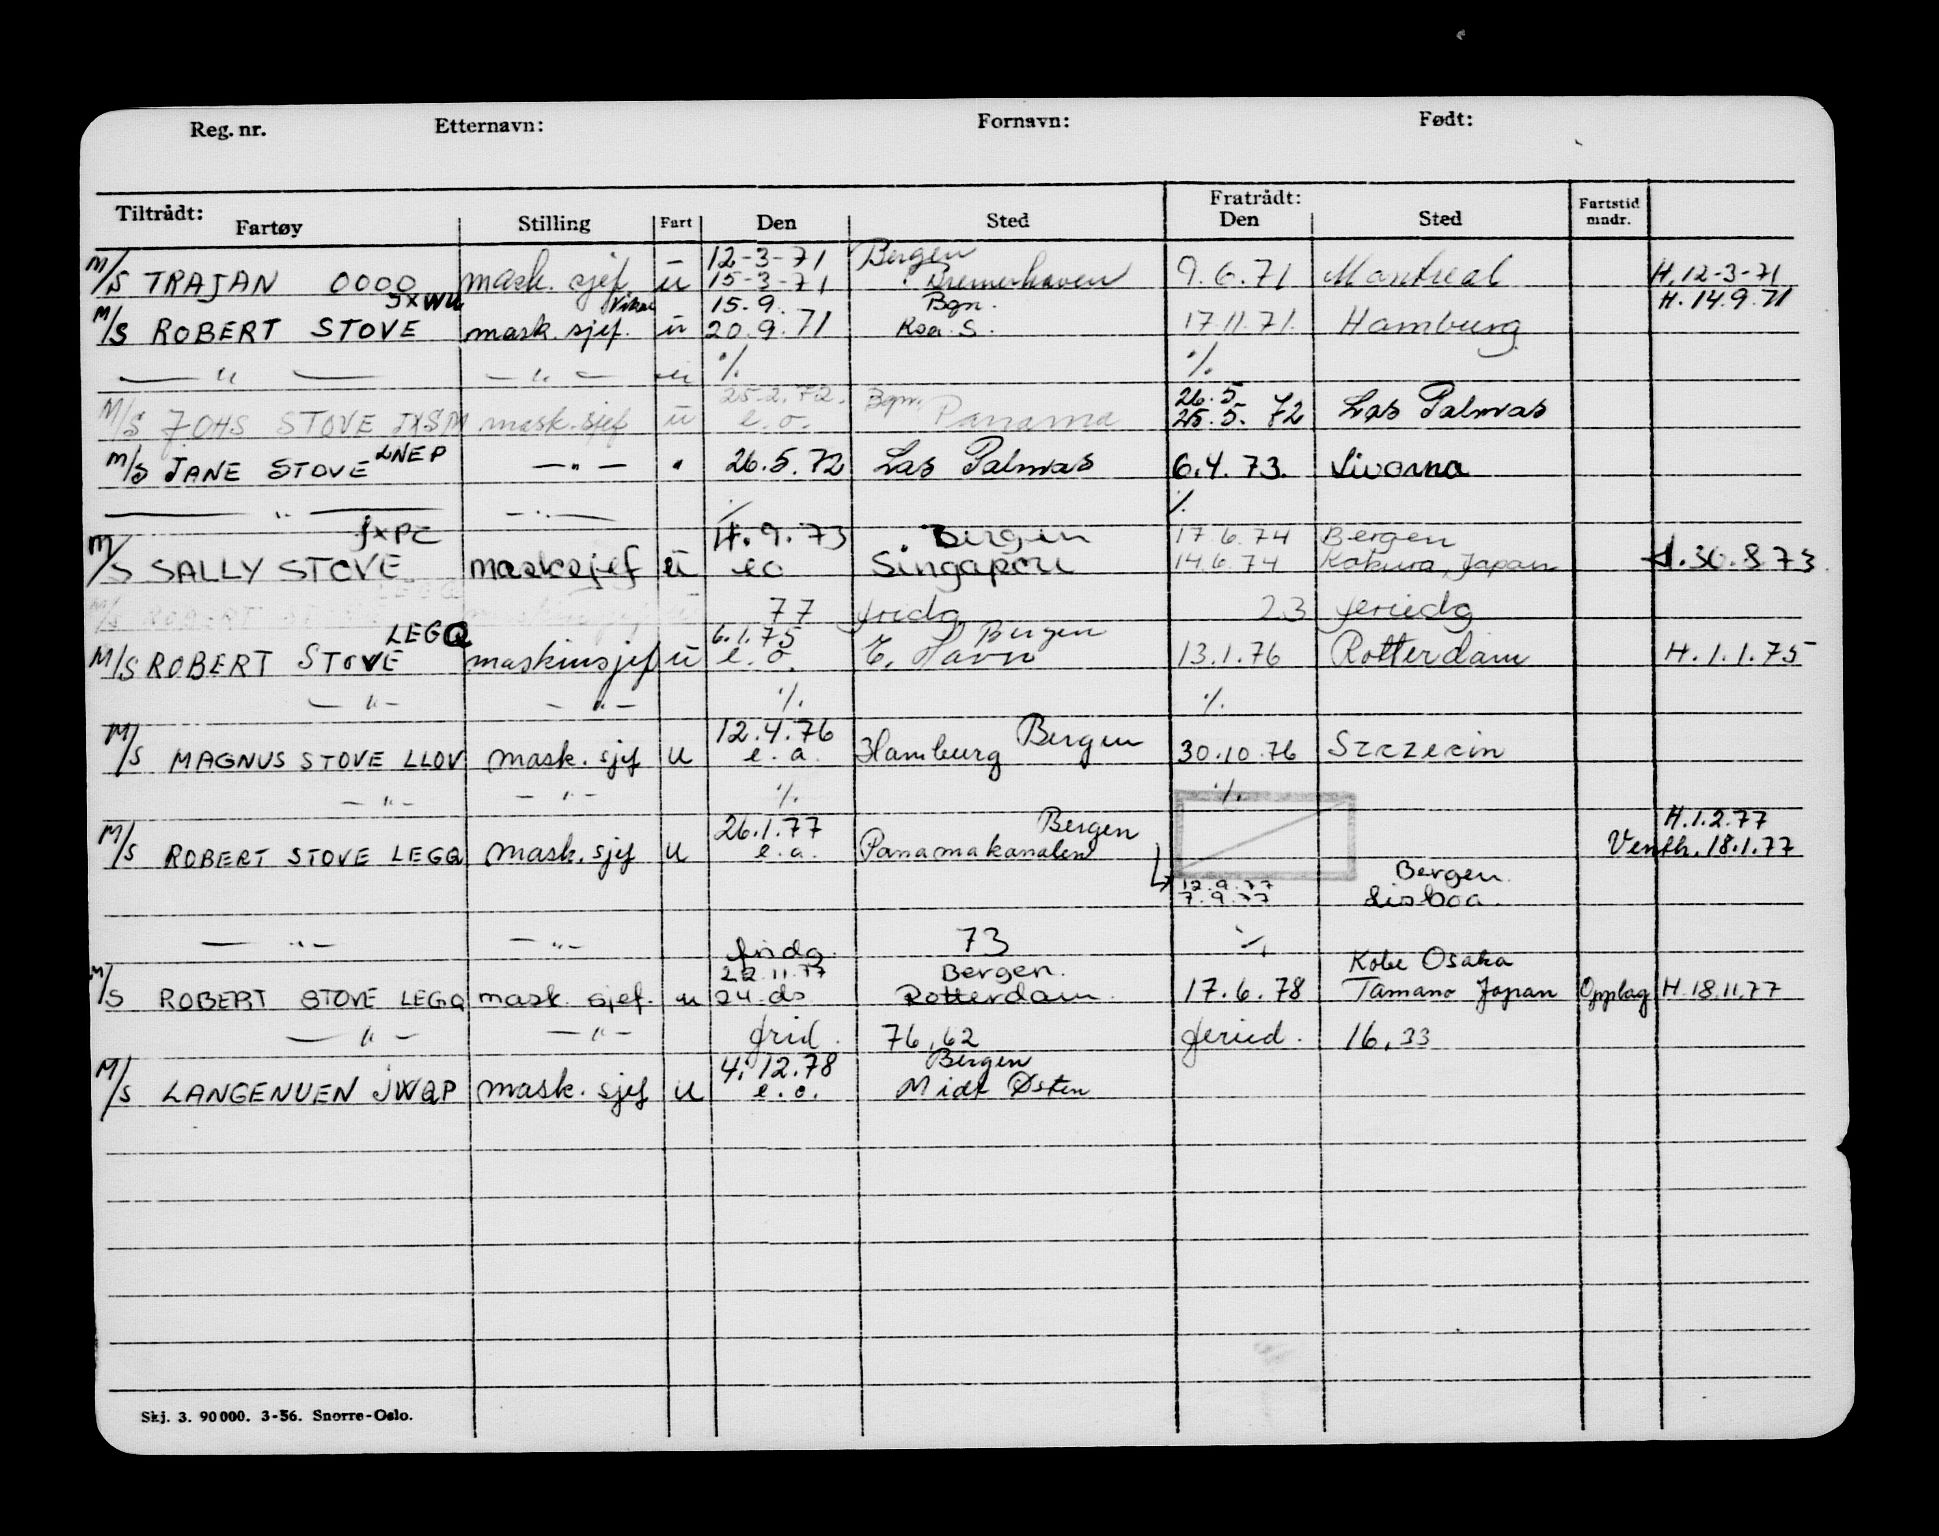 Reg. nr. Etternavn: Fornavn: Født:
Tiltrådt: Fratrådt:
Fartøy Stilling Fart Den Sted Den Sted Fartstid mndr.
12-3-71 Bergen
M/S TRAJAN 0000 mask. sjef. ū 15-3-71 Bremerhaven 9.6.71 Montreal H. 12-3-71
JXWU Vikar 15.9. Bgn. H. 14.9.71
M/S ROBERT STOVE mask. sjef. ū 20.9.71 17.11.71. Hamburg
— " — — " — ū ·/. ·/.
25.2.72. Bgn. 26.5.
M/S JOHS STOVE JXSM mask. sjef ū e.o. Panama 25.5. 72 Las Palmas
M/S JANE STOVE LNEP — " — " 26.5.72 Las Palmas 6.4.73. Livorno
— " — — " — ·/. ·/.
JXPC 4.9.73 Bergen 17.6.74 Bergen
M/S SALLY STOVE masksjef ū eo Singapou 14.6.74 Kokura, Japan 30.8.73.
LEGQ
M/S ROBERT 77 23 feriedg
LEGQ 6.1.75 Bergen
M/S ROBERT STOVE maskinsjef ū e.o. E. Havn 13.1.76 Rotterdam H. 1.1.75
— " — — " — ·/. ·/.
12.4.76 Bergen
M/S MAGNUS STOVE LLOV mask. sjef u e.a. Hamburg 30.10.76 Szczecin
— " — — " — ·/. ·/.
26.1.77 Bergen H.1.2.77
M/S ROBERT STOVE LEGQ mask. sjef u e.a. Panamakanalen Venth. 18.1.77
12.9.77 Bergen.
7.9.77 Lisboa.
— " — — " — fridg. 73 ·/.
22.11.77 Bergen. Kobe Osaka
M/S ROBERT STOVE LEGQ mask. sjef. u 24. ds Rotterdam. 17.6.78 Tamano Japan Opplag H.18.11.77
— " — — " — frid. 76,62 feried. 16,33
4.12.78 Bergen
M/S LANGENUEN JWQP mask. sjef u e.o. Midt Østen
Skj. 3. 90 000. 3-56. Snorre-Oslo.